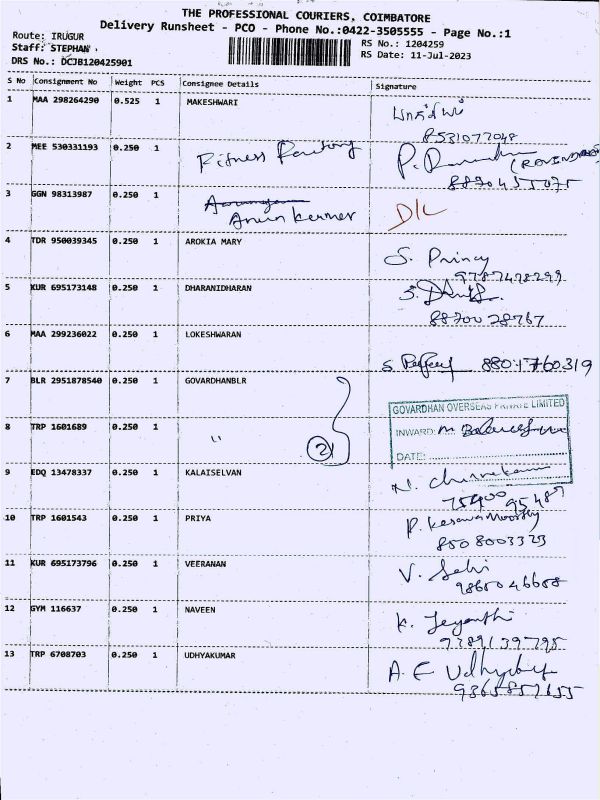 THE PROFESSIONAL COURIERS, COIMBATORE
Delivery Runsheet - PCO - Phone No.:0422-3505555 - Page No.:1
Route: IRUGUR
Staff: STEPHAN
DRS No.: DCJB120425901
RS No.: 1204259
RS Date: 11-Jul-2023
S No Consignment No Weight PCS Consignee Details Signature
1 MAA 298264290 0.525 1 MAKESHWARI
8531077048
2 MEE 530331193 0.250 1 Fitness Factory
8870455075
3 GGN 98313987 0.250 1
Arun kumar D/L
4 TDR 950039345 0.250 1 AROKIA MARY S. Princy
9787478299
5 KUR 695173148 0.250 1 DHARANIDHARAN
8870028767
6 MAA 299236022 0.250 1 LOKESHWARAN
8801760319
7 BLR 2951878540 0.250 1 GOVARDHANBLR
GOVARDHAN OVERSEAS PRIVATE LIMITED
8 TRP 1601689 0.250 1 " 2 INWARD:
DATE:
9 EDQ 13478337 0.250 1 KALAISELVAN
75400 95489
10 TRP 1601543 0.250 1 PRIYA P. Kesavamoorthy
8508003323
11 KUR 695173796 0.250 1 VEERANAN V. Selvi
9865046658
12 GYM 116637 0.250 1 NAVEEN K. Jeyanthi
9789139795
13 TRP 6708703 0.250 1 UDHYAKUMAR
9365857655